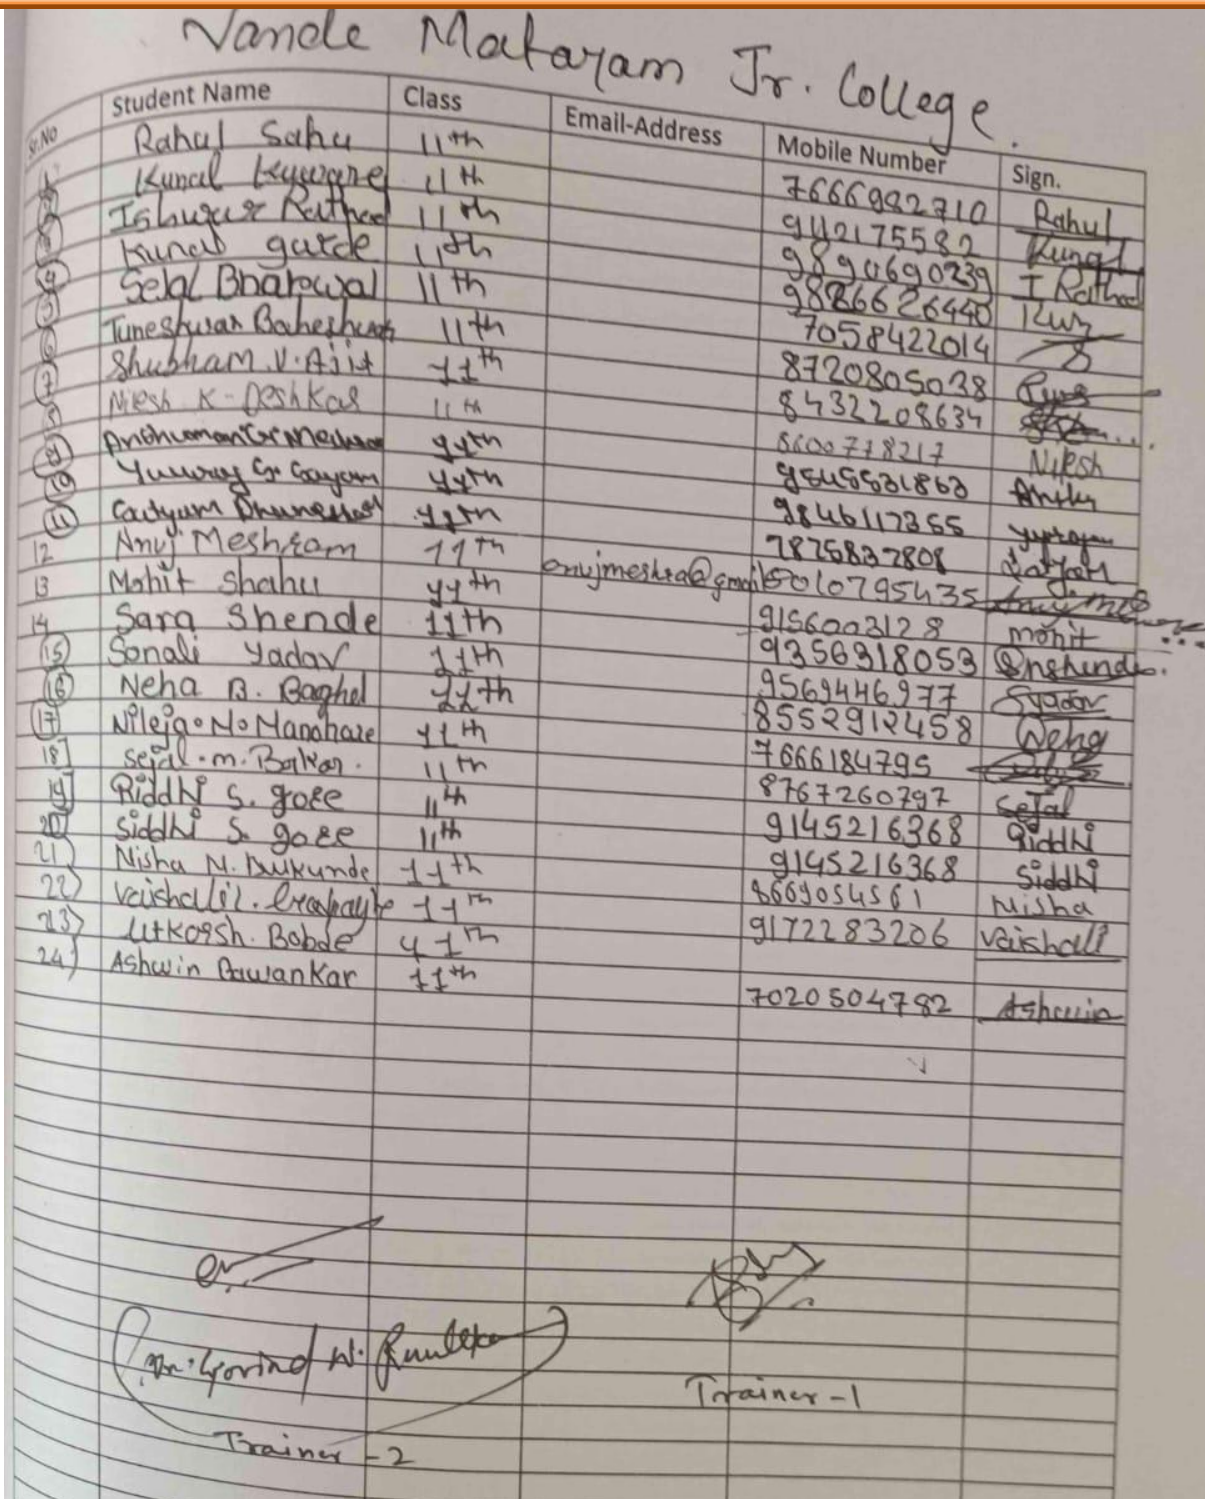 Vande Mataram Jr. College.
Sr.No Student Name Class Email-Address Mobile Number Sign.
1 Rahul Sahu 11th 7666982710 Rahul
2 Kunal 11th 942175582 Kunal
3 Ishwar Rathod 11th 9890690239 I Rathod
4 Kunal garde 11th 9826626440
5 Sejal Bharowal 11th 7058422014
6 Tuneshwar Baheshwar 11th 8720805038
7 Shubham.V.Ajit 11th 8432208634
8 Nilesh K-Deshkar 11th 8600778217 Nilesh
9 Anshuman G. Meshram 11th 9545531863
10 Yuvraj G. Gayam 11th 9846117355
11 11th 7875837808
12 Anuj Meshram 11th anujmeshra@gmail 5010795435
13 Mohit Shahu 11th 9156003128 mohit
14 Sara Shende 11th 9356318053 Snshende.
15 Sonali Yadav 11th 9569446977 Syadav
16 Neha B. Baghel 11th 8552912458 Neha
17 11th 7666184795
18] Sejal.m.Bakar. 11th 8767260797 Sejal
19] Riddhi S. gore 11th 9145216368 Riddhi
20] Siddhi S. gore 11th 9145216368 Siddhi
21) Nisha N. Dukunde 11th 8669054561 Nisha
22) Vaishali 11th 9172283206 Vaishali
23) Utkarsh. Bobde 11th
24) Ashwin Pawankar 11th 7020504782 Ashwin
Govind W.
Trainer-1
Trainer-2